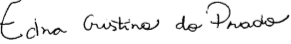 Edna Cristina do Prado